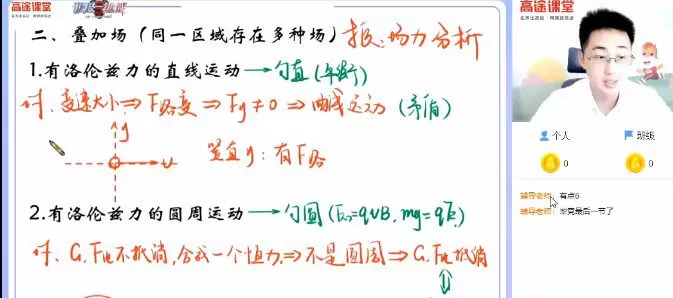 高途课堂
高途课堂
名师出高徒 网课选高途
二、叠加场（同一区域存在多种场） 场力分析
1.有洛伦兹力的直线运动 → 匀直（平衡）
设、变速大小 ⇒ F洛变 ⇒ Fy ≠ 0 ⇒ 曲线运动（矛盾）
y
v
竖直y：有F洛
2.有洛伦兹力的圆周运动 → 匀圆（F洛=qvB, mg=qE）
设、G、F电不抵消，合成一个恒力，⇒ 不是圆周 ⇒ G、F电抵消
个人 班级
0 0
辅导老师： 有点6
辅导老师： 毕竟最后一节了